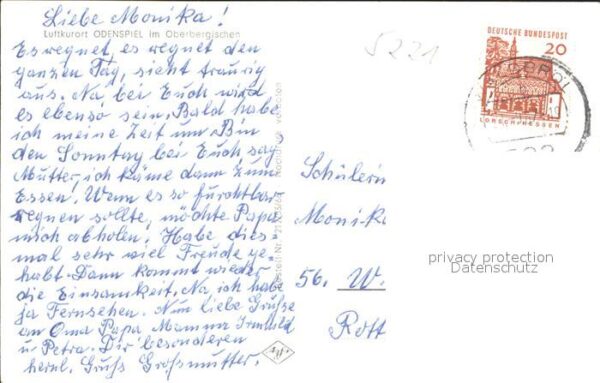 Liebe Monika!
Luftkurort ODENSPIEL im Oberbergischen
Es regnet, es regnet den
ganzen Tag, sieht traurig
aus. Na, bei Euch wird
es ebenso sein. Bald habe
ich meine Zeit um. Bin
den Sonntag bei Euch, sag
Mutter, ich käme dann zum
Essen. Wenn es so furchtbar
regnen sollte, möchte Papa
mich abholen. Habe dies-
mal sehr viel Freude ge-
habt. Dann kommt wieder
die Einsamkeit. Na ich habe
ja Fernsehen. Nun liebe Grüße
an Oma Papa Mamma Irmhild
u. Petra. Dir besonderen
herzl. Gruß Großmutter.
5221
DEUTSCHE BUNDESPOST
20
LORSCH/HESSEN
Schülerin
Monik
56. W.
Rott
privacy protection
Datenschutz